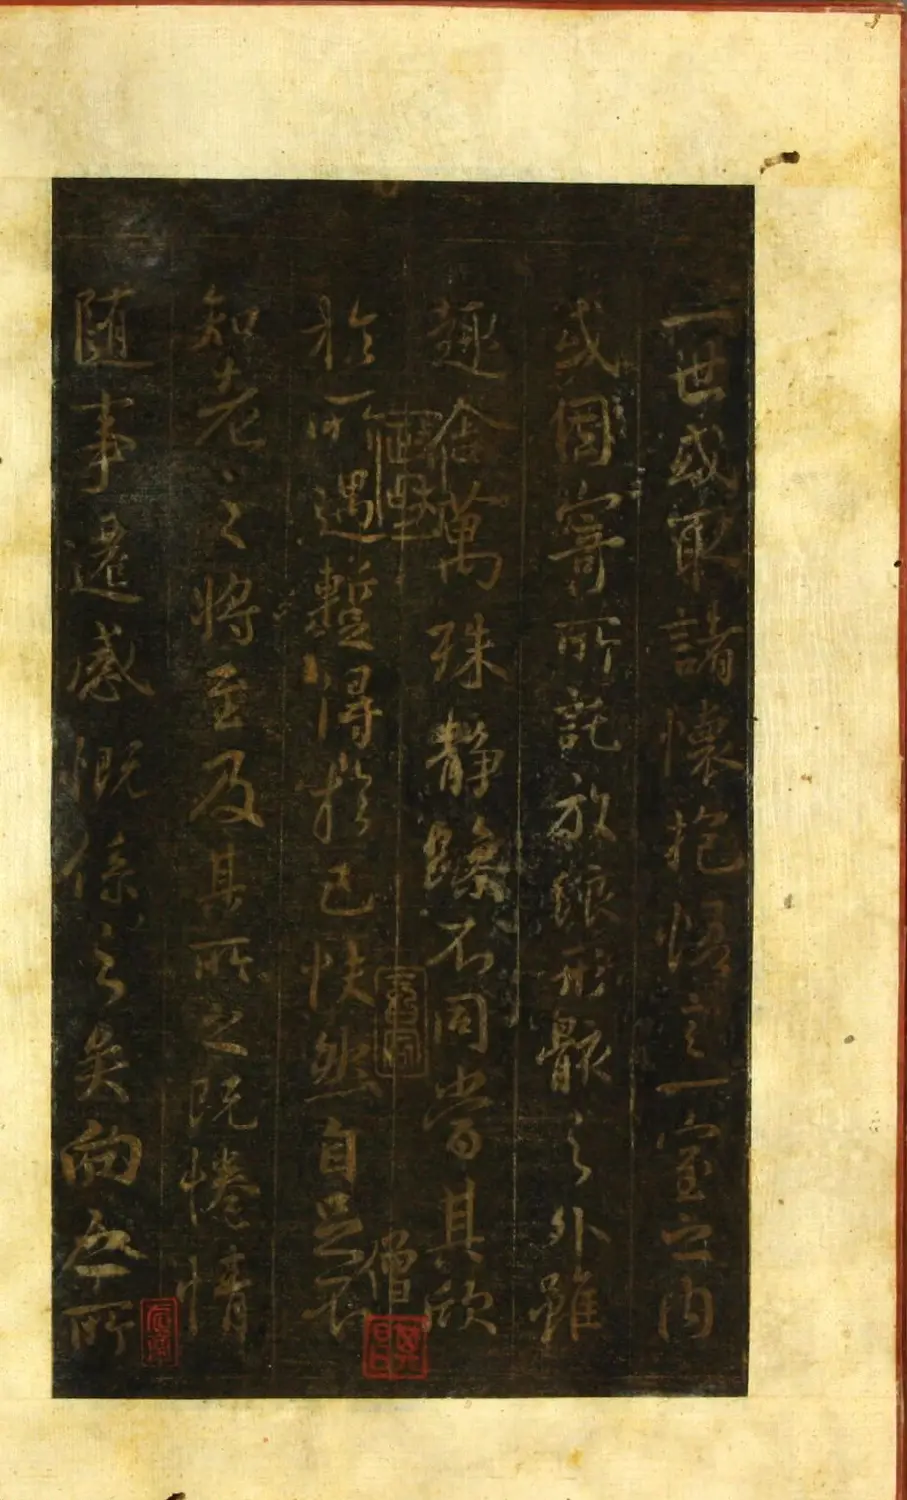 一世或取諸懷抱悟言一室之内
或因寄所託放浪形骸之外雖
趣舍萬殊静躁不同當其欣
於所遇暫得於己怏然自足不
僧
知老之將至及其所之既惓情
隨事遷感慨係之矣向之所